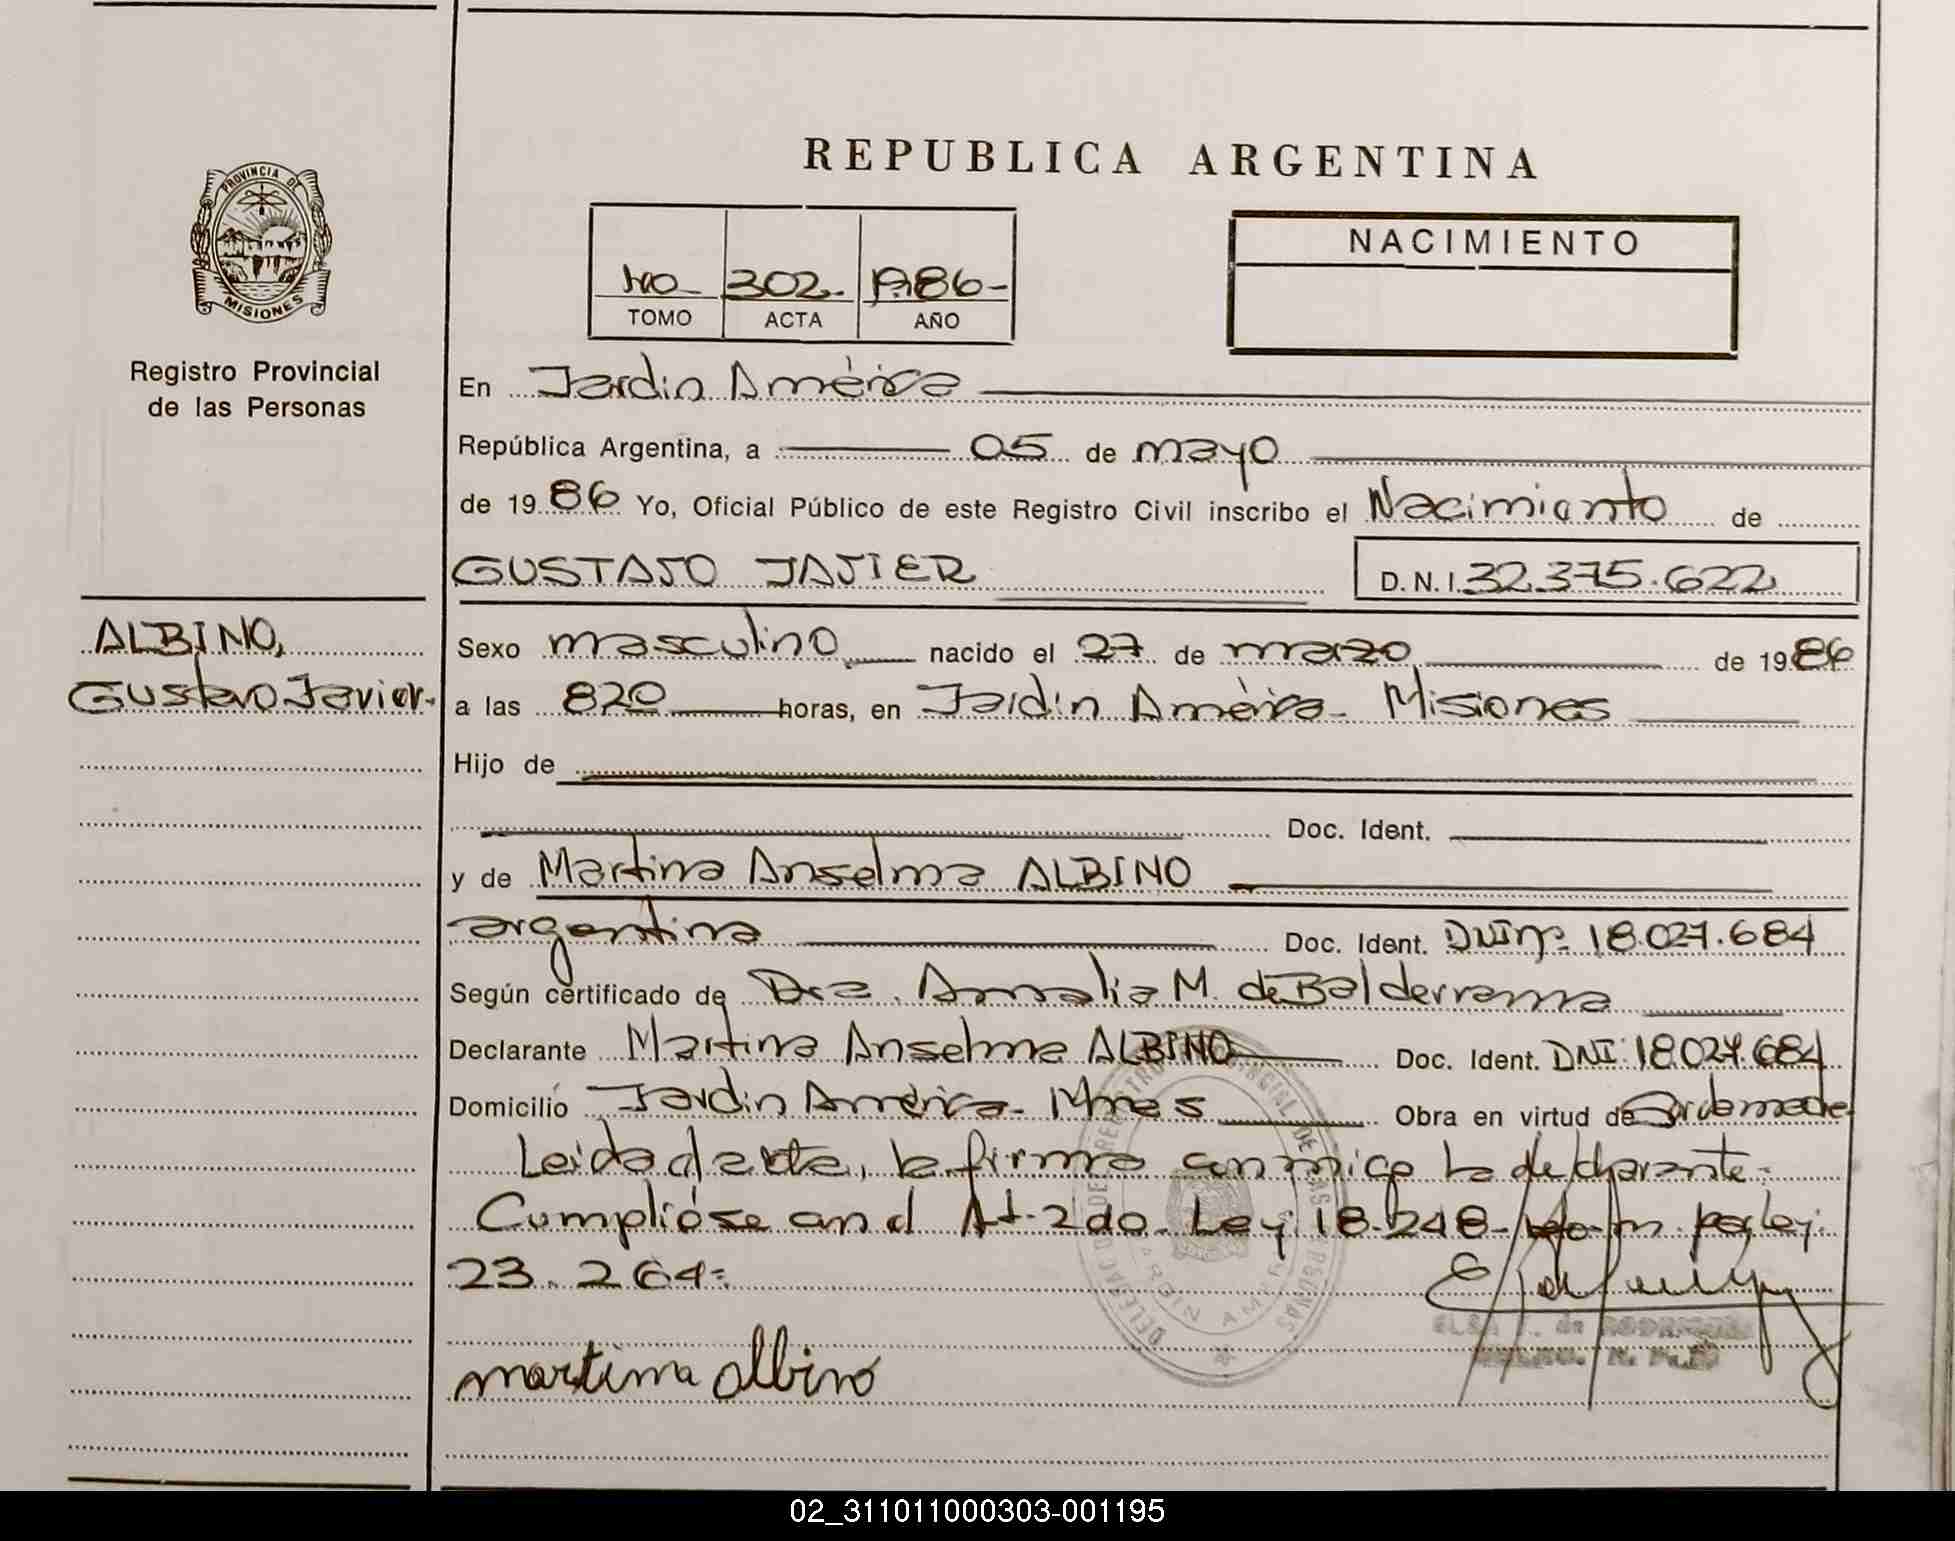 REPUBLICA ARGENTINA
PROVINCIA DE
MISIONES
Registro Provincial
de las Personas
302 - 1986 -
TOMO ACTA AÑO
NACIMIENTO
En Jardin América
República Argentina, a 05 de mayo
de 1986 Yo, Oficial Público de este Registro Civil inscribo el Nacimiento de
GUSTAVO JAVIER D.N.I. 32.375.622
ALBINO,
Gustavo Javier.
Sexo masculino nacido el 27 de marzo de 1986
a las 820 horas, en Jardin América - Misiones
Hijo de
Doc. Ident.
y de Martina Anselma ALBINO
argentina Doc. Ident. DNI nº 18.027.684
Según certificado de Dra. Amalia M. de Balderrama
Declarante Martina Anselma ALBINO Doc. Ident. DNI: 18.027.684
Domicilio Jardin América - Mnes Obra en virtud de
Leida el acta, la firma conmigo la declarante.
Cumplióse en el Art. 2do. Ley 18.248 - por ley:
23.264=
martina albino
ELSA de
02_311011000303-001195